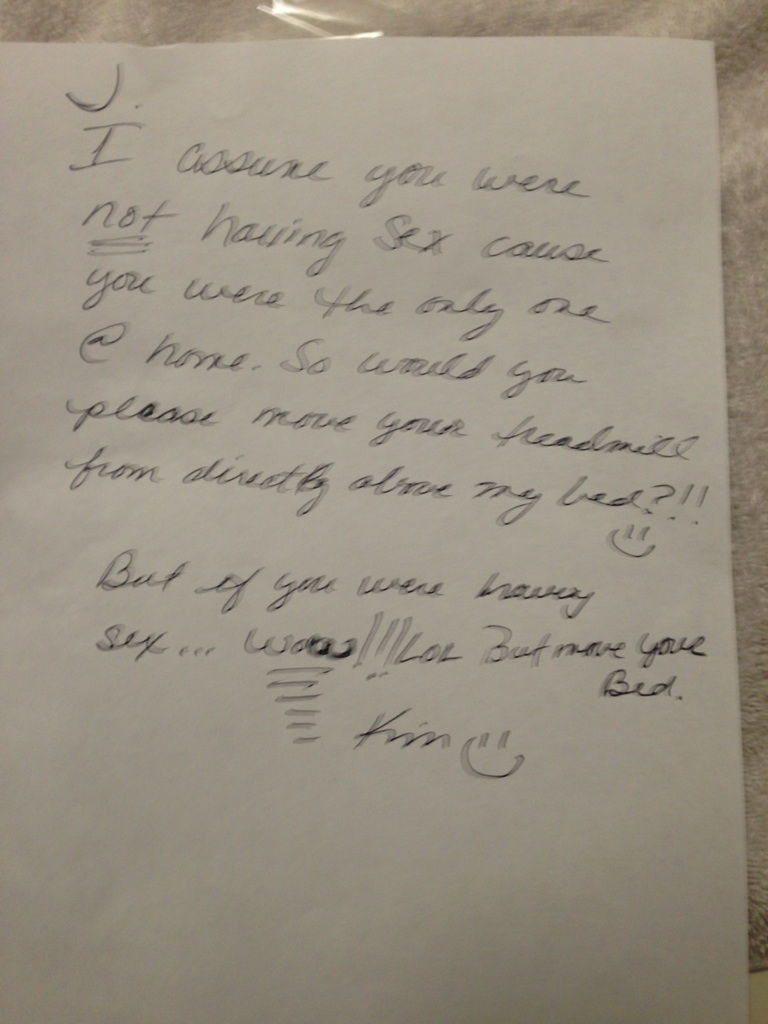 J.
I assume you were
not having sex cause
you were the only one
@ home. So would you
please move your treadmill
from directly above my bed?!!
But if you were having
sex... wow!!! LOL But move your
Bed.
Kim